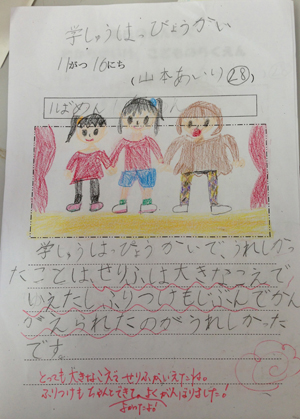 学しゅうはっぴょうかい
11がつ16にち
(山本あいり 28)
ばめん
学しゅうはっぴょうかいで、うれしかっ
たことは、せりふは大きなこえで
いえたし、ふりつけもじぶんでかん
がえられたのがうれしかった
です。
とっても大きなこえで せりふがいえたね。
ふりつけもちゃんとできて、よくがんばりました!
よかったよ!